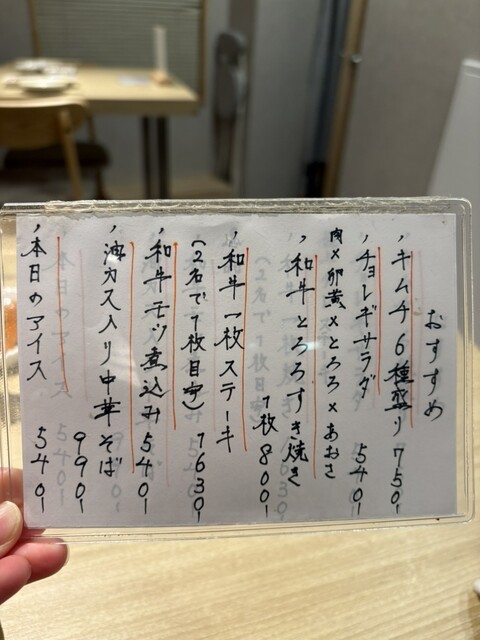 おすすめ
、キムチ6種盛り 750-
、チョレギサラダ 540-
肉×卵黄×とろろ×あおさ
、和牛とろろすき焼き
1枚 800-
、和牛一枚ステーキ
(2名で1枚目安) 1630-
、和牛モツ煮込み 540-
、油カス入り中華そば
990-
、本日のアイス 540-